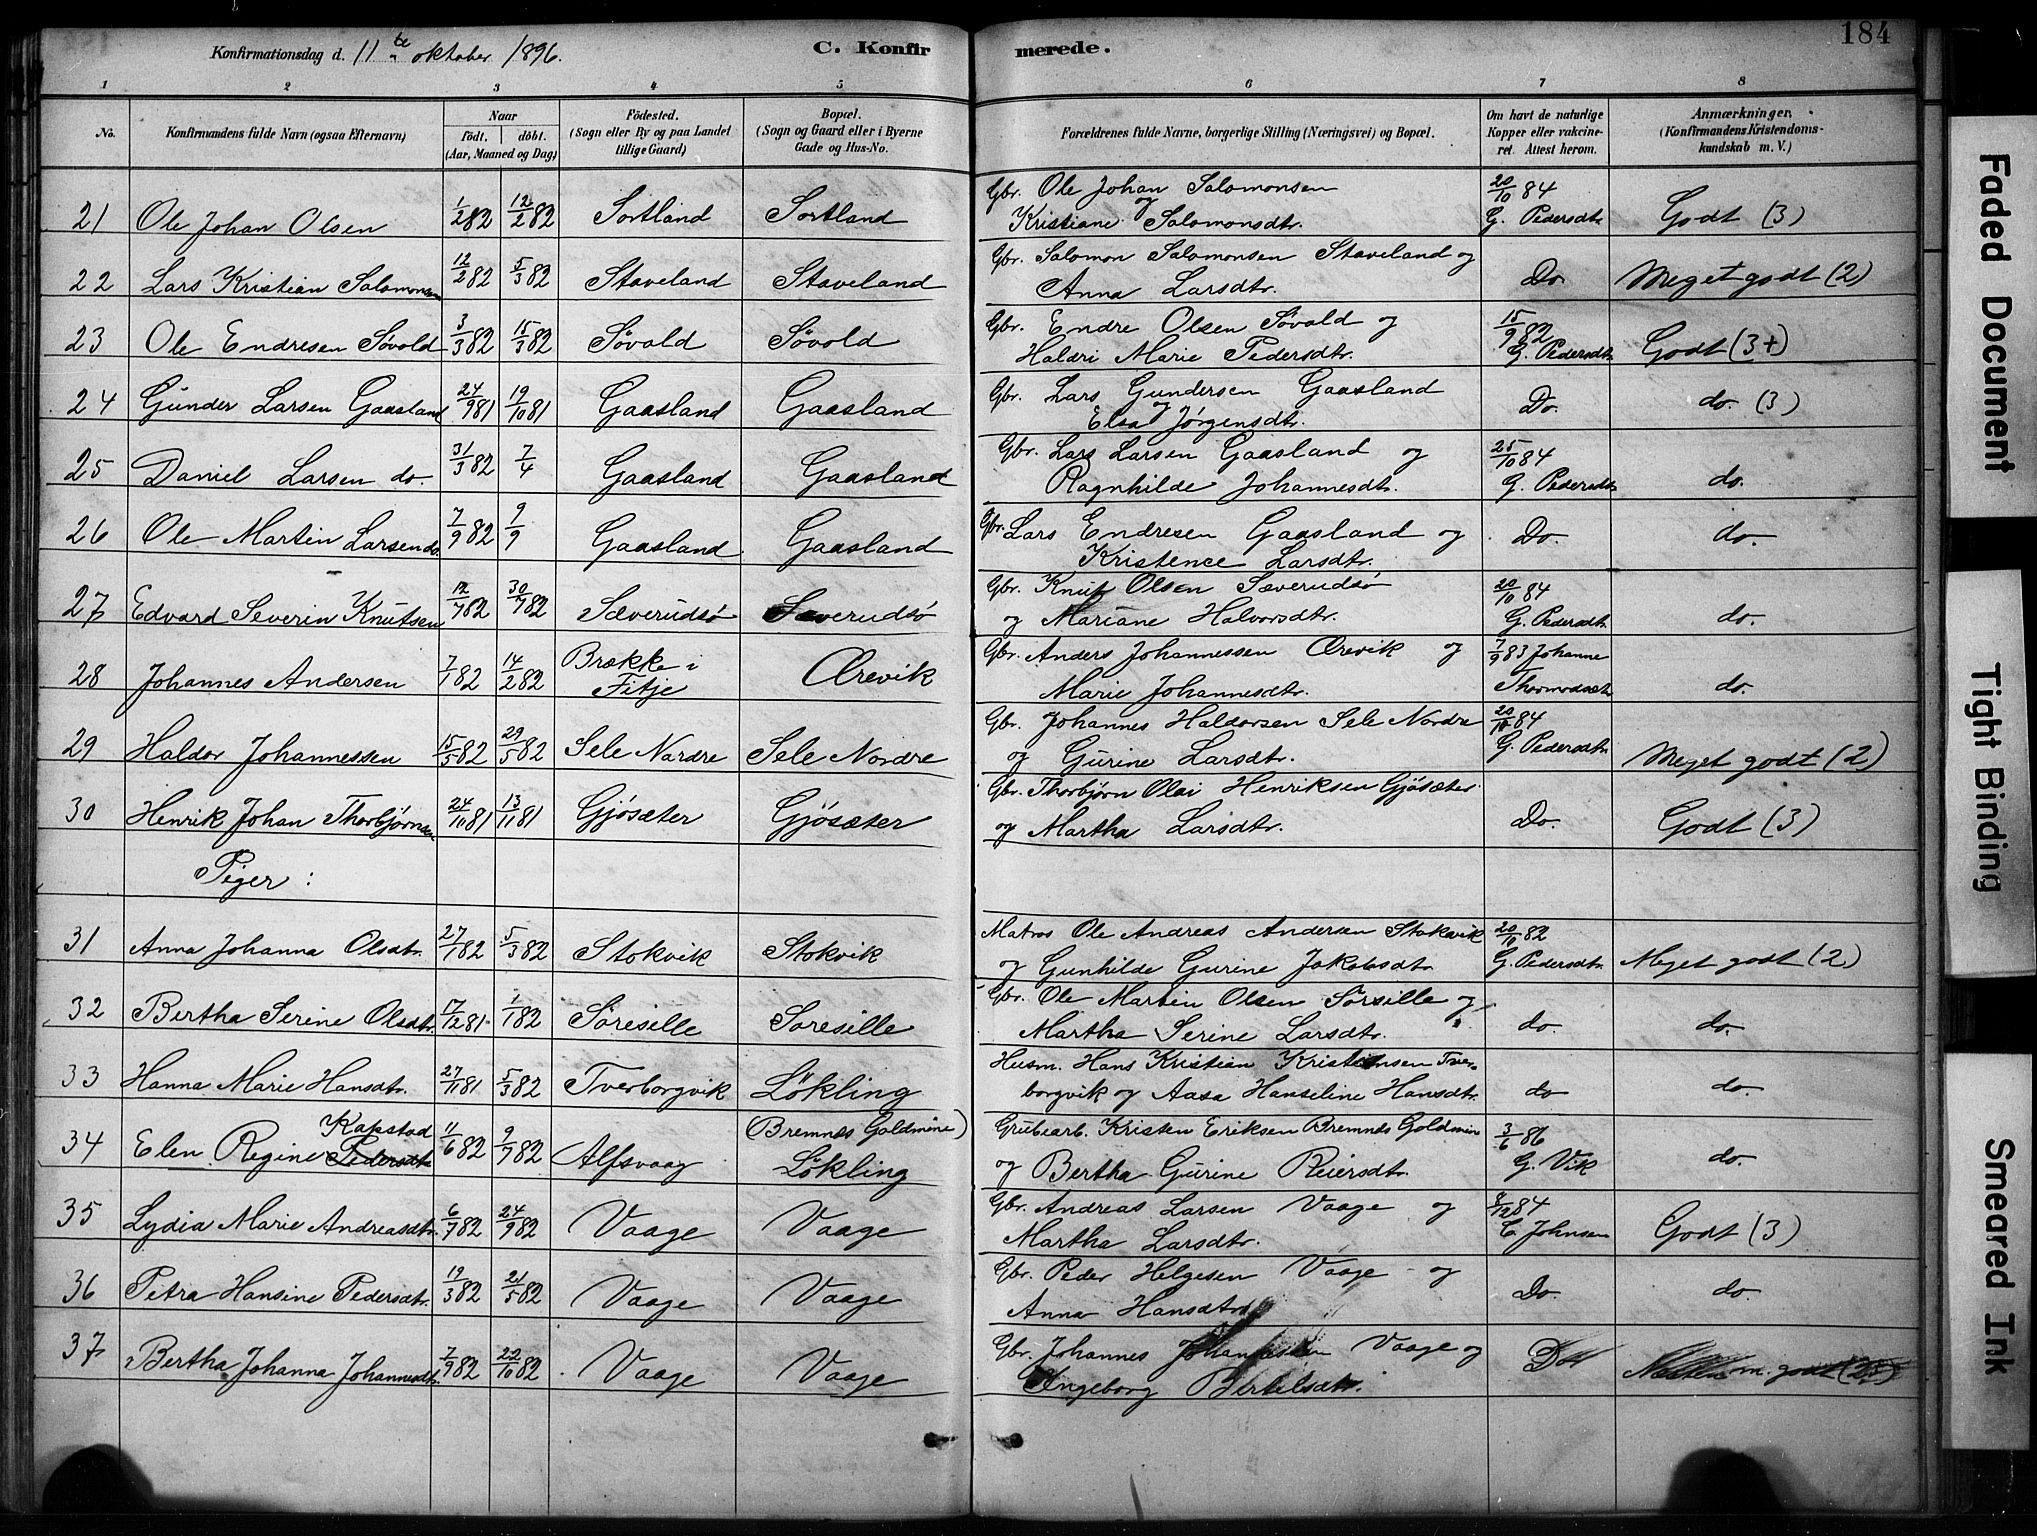 Konfirmationsdag d. 11te oktober 1896.
C. Konfirmerede.
184
1 2 3 4 5 6 7 8
No. Konfirmandens fulde Navn (ogsaa Efternavn) Naar født. døbt. (Aar, Maaned og Dag) Födested. (Sogn eller By og paa Landet tillige Gaard) Bopæl. (Sogn og Gaard eller i Byerne Gade og Hus-No. Forældrenes fulde Navne, borgerlige Stilling (Næringsvei) og Bopæl. Om havt de naturlige Kopper eller vakcineret. Attest herom. Anmærkninger. (Konfirmandens Kristendomskundskab m. V.)
21 Ole Johan Olsen 1/2 82 12/2 82 Sortland Sortland Gbr. Ole Johan Salomonsen og Kristiane Salomonsdtr. 20/10 84 G. Pedersdtr Godt (3)
22 Lars Kristian Salomonsen 12/2 82 5/3 82 Staveland Staveland Gbr. Salomon Salomonsen Staveland og Anna Larsdtr. Do. Meget godt (2)
23 Ole Endresen Søvold 3/3 82 15/3 82 Søvald Søvold Gbr. Endre Olsen Søvald og Haldri Marie Pedersdtr. 15/9 82 G. Pedersdtr. Godt (3+)
24 Gunder Larsen Gaasland 24/9 81 19/10 81 Gaasland Gaasland Gbr. Lars Gundersen Gaasland og Elsa Jørgensdtr. Do. do. (3)
25 Daniel Larsen do. 31/3 82 7/4 Gaasland Gaasland Gbr. Lars Larsen Gaasland og Ragnhilde Johannesdtr. 25/10 84 G. Pedersdtr do.
26 Ole Martin Larsen do. 7/9 82 9/9 Gaasland Gaasland Gbr. Lars Endresen Gaasland og Kristence Larsdtr. Do. do.
27 Edvard Severin Knutsen 12/7 82 30/7 82 Sæverudsø Sæverudsø Gbr. Knut Olsen Sæverudsø og Mariane Halvorsdtr. 20/10 84 G. Pedersdtr. do.
28 Johannes Andersen 7/1 82 14/2 82 Brække i Fitje Ørevik Gbr. Anders Johannessen Ørevik og Marie Johannesdtr. 7/9 83 Johanne Thormodsdtr do.
29 Haldor Johannessen 15/5 82 29/5 82 Sele Nordre Sele Nordre Gbr. Johannes Haldorsen Sele Nordre og Gurine Larsdtr. 20/10 84 G. Pedersdtr. Meget godt (2)
30 Henrik Johan Thorbjørnsen 24/10 81 13/11 81 Gjøsæter Gjøsæter Gbr. Thorbjørn Olai Henriksen Gjøsæter og Martha Larsdtr. Do. Godt (3)
Piger:
31 Anna Johanna Olsdtr. 27/1 82 5/3 82 Stokvik Stokvik Matros Ole Andreas Andersen Stokvik og Gunhilde Gurine Jakobsdtr. 20/10 82 G. Pedersdtr. Meget godt (2)
32 Bertha Serine Olsdtr. 17/12 81 1/1 82 Søresille Søresille Gbr. Ole Martin Olsen Sørsille og Martha Serine Larsdtr. do. do.
33 Hanna Marie Hansdtr. 27/11 81 5/3 82 Tverborgvik Løkling Husm. Hans Kristian Kristiansen Tverborgvik og Aasa Hanseline Hansdtr. do do.
34 Elen Regine Pedersdtr Kapstad 11/6 82 9/7 82 Alfsvaag (Bremnes Goldmine) Løkling Grubearb. Kristen Eriksen Bremnes Goldmine og Bertha Gurine Reiersdtr. 3/6 86 G. Vik do.
35 Lydia Marie Andreasdtr. 6/7 82 24/9 82 Vaage Vaage Gbr. Andreas Larsen Vaage og Martha Larsdtr. 8/12 84 C. Johnsen Godt (3)
36 Petra Hansine Pedersdtr. 19/3 82 21/5 82 Vaage Vaage Gbr. Peder Helgesen Vaage og Anna Hansdtr. Do. do.
37 Bertha Johanna Johannesdtr. 7/9 82 22/10 82 Vaage Vaage Gbr. Johannes Johannessen Vaage og Ingeborg Bertelsdtr. Do Næsten m. godt
Faded Document
Tight Binding
Smeared Ink